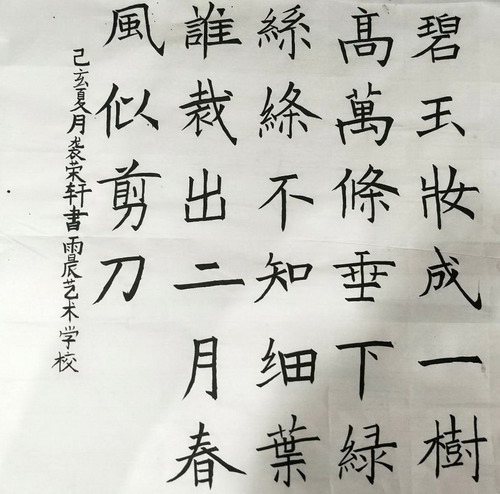 碧玉妝成一樹
髙萬條垂下緑
絲絛不知细葉
誰裁出二月春
風似剪刀
己亥夏月荣轩書雨晨艺术学校